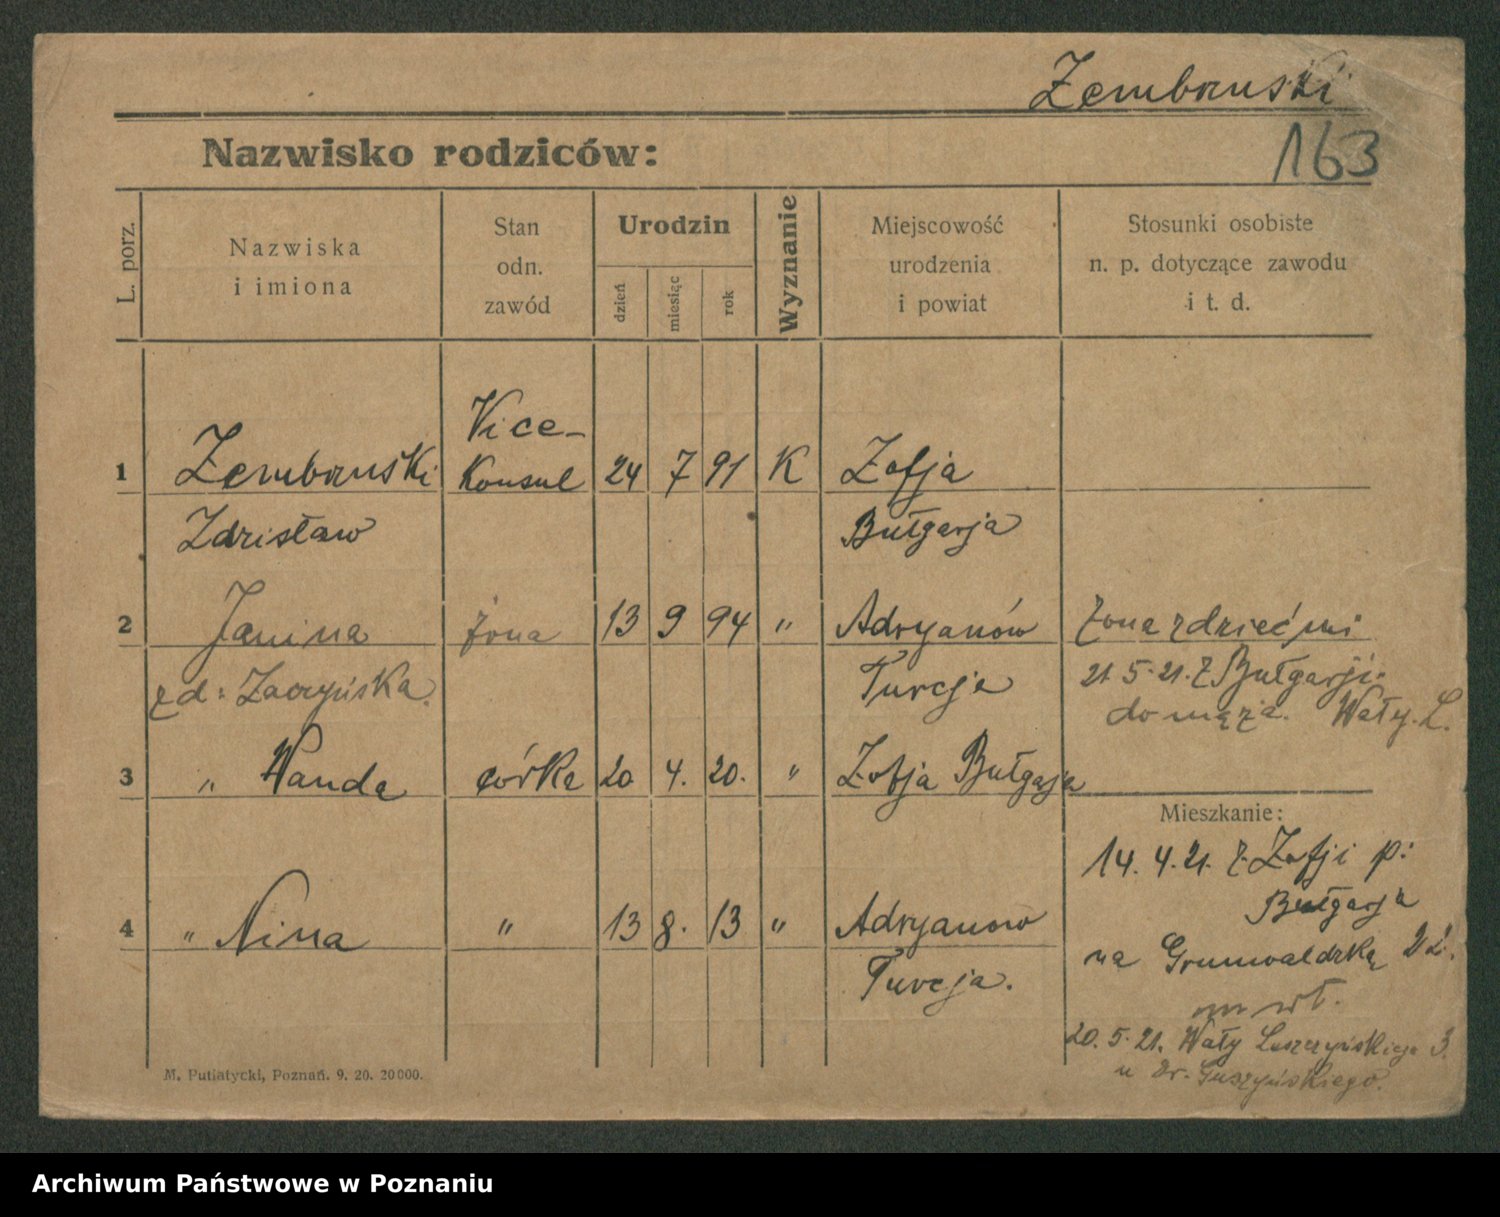 Zembrzuski
163
Nazwisko rodziców:
L. porz.
Nazwiska
i imiona
Stan
odn.
zawód
Urodzin
dzień
miesiąc
rok
Wyznanie
Miejscowość
urodzenia
i powiat
Stosunki osobiste
n. p. dotyczące zawodu
i t. d.
Vice-
1 Zembrzuski Konsul 24 7 91 K Zofja
Zdzisław Bułgarja
2 Janina żona 13 9 94 " Adryanów żona z dziećmi
zd: Turcja 21.5.21. z Bułgarji
do męża. Wały. L.
3 " Wanda córka 20 4. 20. " Zofja Bułgarja
Mieszkanie:
14.4.21. z Zofji p:
Bułgarja
4 " Nina " 13 8. 13 " Adryanow
na Grunwaldzką
Turcja.
20.5.21. Wały Leszczyńskiego 3.
u Dr.
M. Putiatycki, Poznań. 9. 20. 20000.
Archiwum Państwowe w Poznaniu